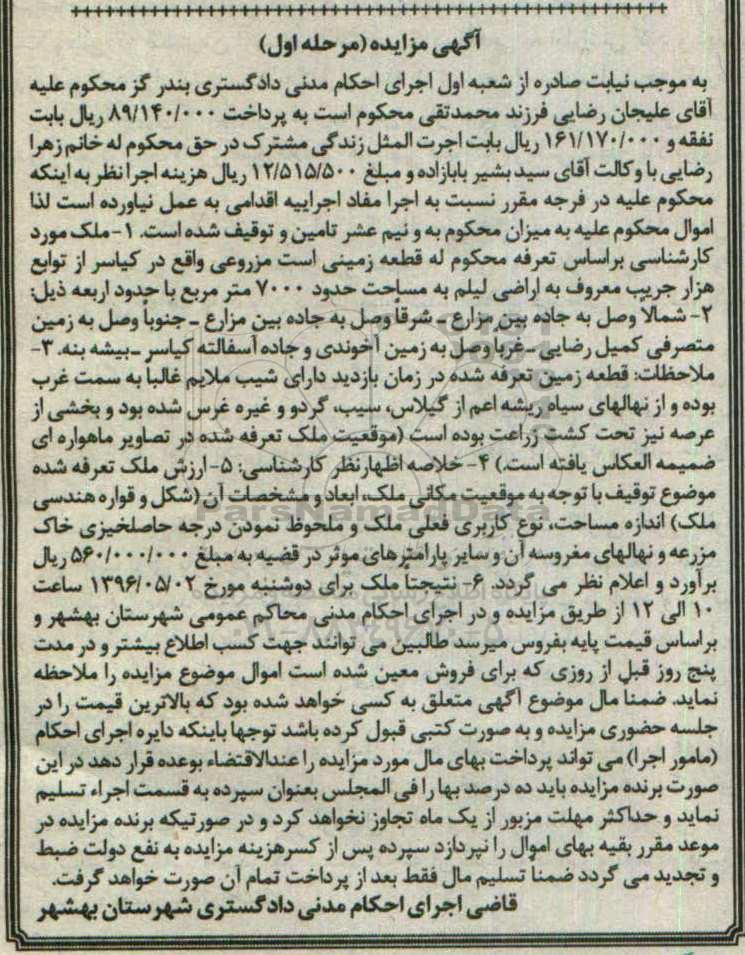 آگهی مزایده (مرحله اول)
به موجب نیابت صادره از شعبه اول اجرای احکام مدنی دادگستری بندر گز محکوم علیه
آقای علیجان رضایی فرزند محمدتقی محکوم است به پرداخت ۸۹/۱۴۰/۰۰۰ ریال بابت
نفقه و ۱۶۱/۱۷۰/۰۰۰ ریال بابت اجرت المثل زندگی مشترک در حق محکوم له خانم زهرا
رضایی با وکالت آقای سید بشیر بابازاده و مبلغ ۱۲/۵۱۵/۵۰۰ ریال هزینه اجرا نظر به اینکه
محکوم علیه در فرجه مقرر نسبت به اجرا مفاد اجراییه اقدامی به عمل نیاورده است لذا
اموال محکوم علیه به میزان محکوم به و نیم عشر تامین و توقیف شده است. ۱- ملک مورد
کارشناسی براساس تعرفه محکوم له قطعه زمینی است مزروعی واقع در کیاسر از توابع
هزار جریب معروف به اراضی لیلم به مساحت حدود ۷۰۰۰ متر مربع با حدود اربعه ذیل:
۲- شمالاً وصل به جاده بین مزارع ـ شرقاً وصل به جاده بین مزارع ـ جنوباً وصل به زمین
متصرفی کمیل رضایی ـ غرباً وصل به زمین آخوندی و جاده آسفالته کیاسر ـ بیشه بنه. ۳-
ملاحظات: قطعه زمین تعرفه شده در زمان بازدید دارای شیب ملایم غالباً به سمت غرب
بوده و از نهالهای سیاه ریشه اعم از گیلاس، سیب، گردو و غیره غرس شده بود و بخشی از
عرصه نیز تحت کشت زراعت بوده است (موقعیت ملک تعرفه شده در تصاویر ماهواره ای
ضمیمه العکاس یافته است.) ۴- خلاصه اظهارنظر کارشناسی: ۵- ارزش ملک تعرفه شده
موضوع توقیف با توجه به موقعیت مکانی ملک، ابعاد و مشخصات آن (شکل و قواره هندسی
ملک) اندازه مساحت، نوع کاربری فعلی ملک و ملحوظ نمودن درجه حاصلخیزی خاک
مزرعه و نهالهای مغروسه آن و سایر پارامترهای موثر در قضیه به مبلغ ۵۶۰/۰۰۰/۰۰۰ ریال
برآورد و اعلام نظر می گردد. ۶- نتیجتاً ملک برای دوشنبه مورخ ۱۳۹۶/۰۵/۰۲ ساعت
۱۰ الی ۱۲ از طریق مزایده و در اجرای احکام مدنی محاکم عمومی شهرستان بهشهر و
براساس قیمت پایه بفروس میرسد طالبین می توانند جهت کسب اطلاع بیشتر و در مدت
پنج روز قبل از روزی که برای فروش معین شده است اموال موضوع مزایده را ملاحظه
نماید. ضمنا مال موضوع آگهی متعلق به کسی خواهد شده بود که بالاترین قیمت را در
جلسه حضوری مزایده و به صورت کتبی قبول کرده باشد توجهاً باینکه دایره اجرای احکام
(مامور اجرا) می تواند پرداخت بهای مال مورد مزایده را عندالاقتضاء بوعده قرار دهد در این
صورت برنده مزایده باید ده درصد بها را فی المجلس بعنوان سپرده به قسمت اجراء تسلیم
نماید و حداکثر مهلت مزبور از یک ماه تجاوز نخواهد کرد و در صورتیکه برنده مزایده در
موعد مقرر بقیه بهای اموال را نپردازد سپرده پس از کسر هزینه مزایده به نفع دولت ضبط
و تجدید می گردد ضمناً تسلیم مال فقط بعد از پرداخت تمام آن صورت خواهد گرفت.
قاضی اجرای احکام مدنی دادگستری شهرستان بهشهر
ParsNamadData